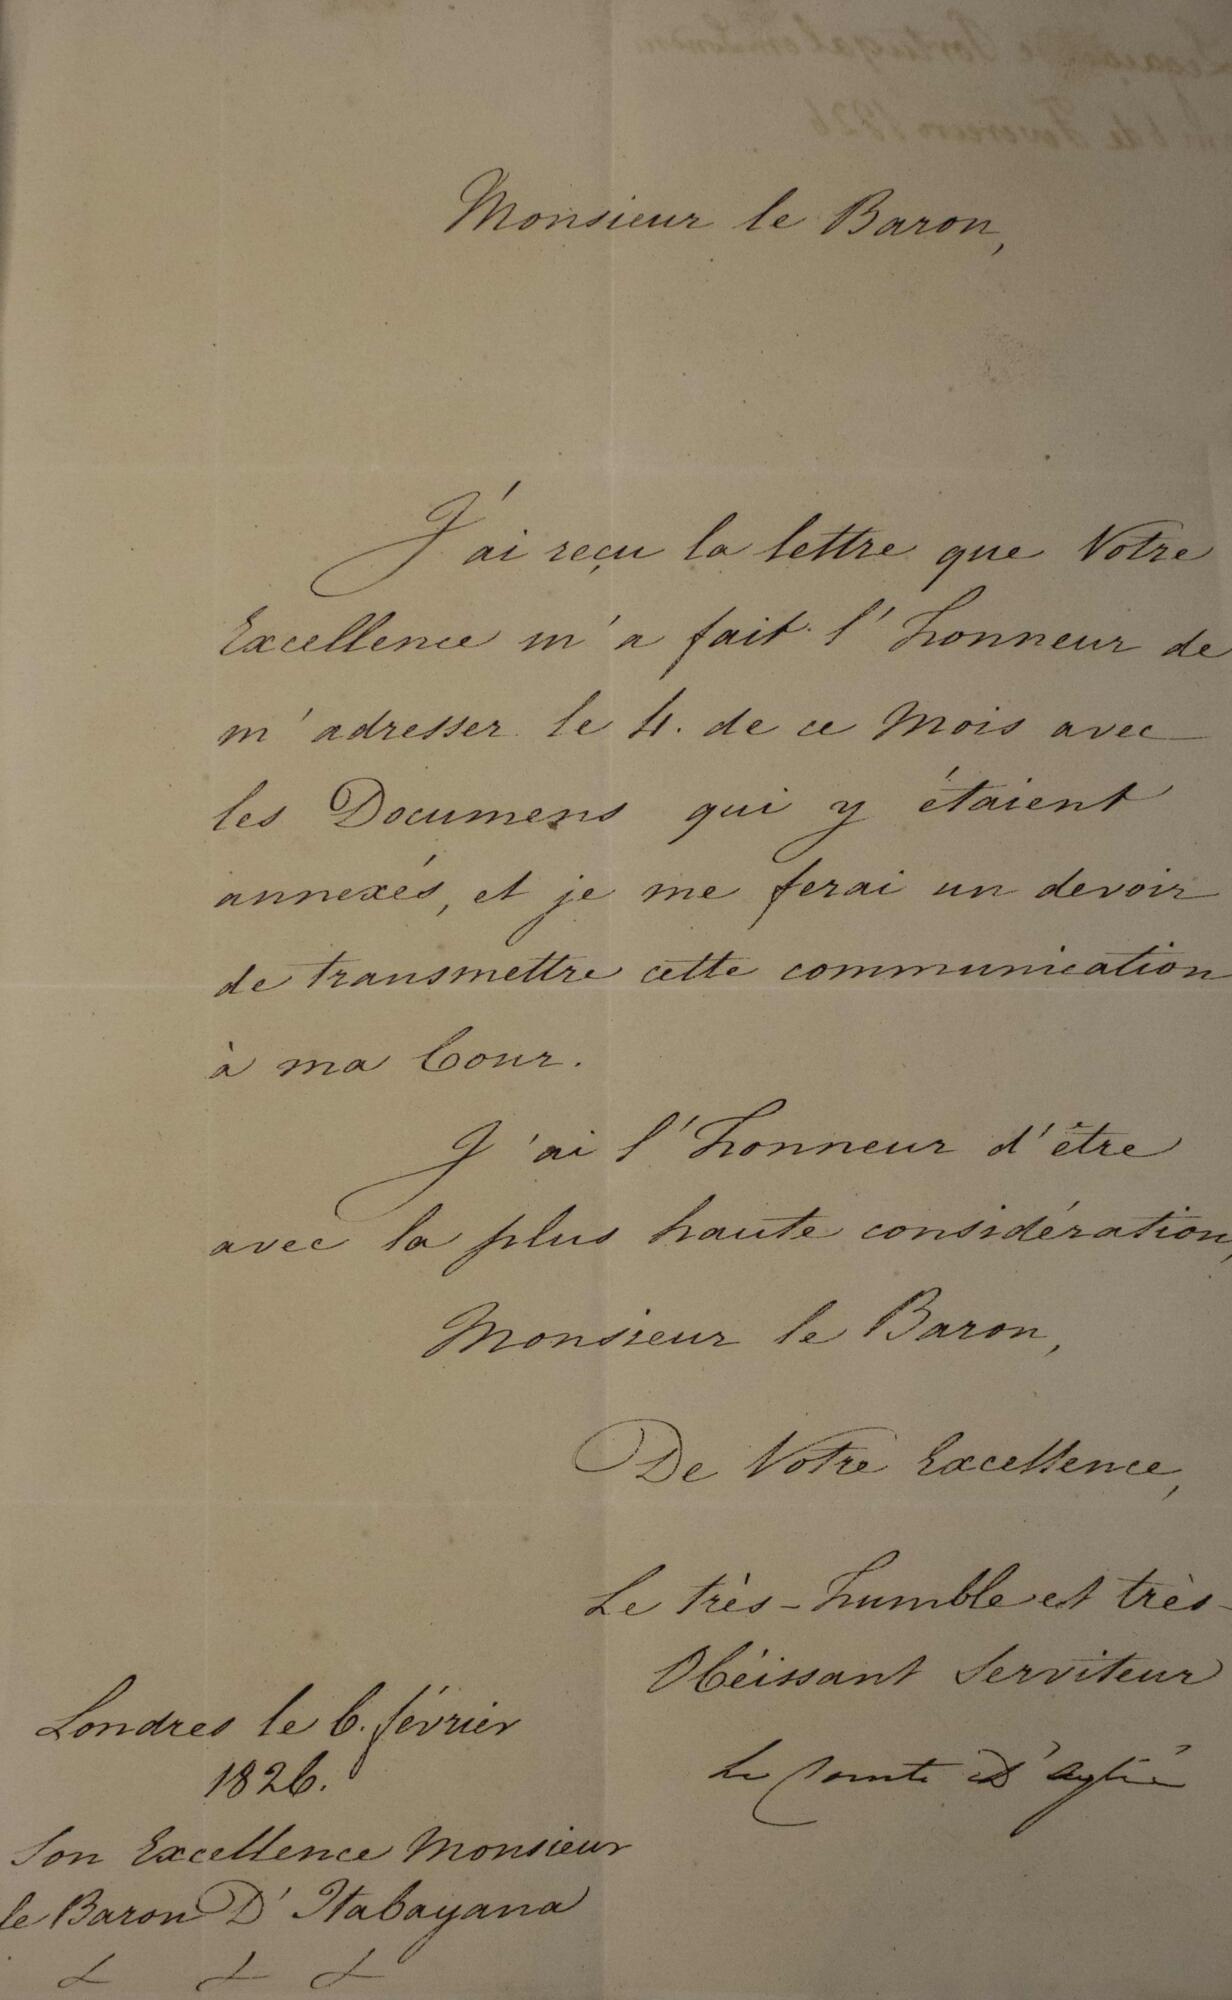 Monsieur le Baron,
J'ai reçu la lettre que Votre
Excellence m'a fait l'honneur de
m'adresser le 4. de ce Mois avec
les Documens qui y étaient
annexés, et je me ferai un devoir
de transmettre cette communication
à ma Cour.
J'ai l'honneur d'être
avec la plus haute considération,
Monsieur le Baron,
De Votre Excellence,
Le très-humble et très-
Obéissant Serviteur
Le Comte D'Aglié
Londres le 6. février
1826.
Son Excellence Monsieur
le Baron D'Itabayana
& & &